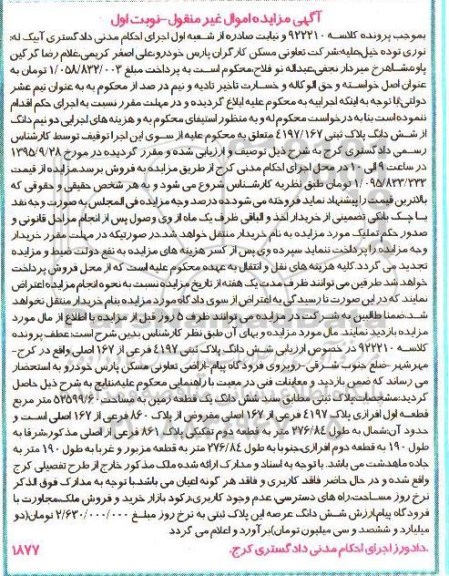 آگهی مزایده اموال غیر منقول-نوبت اول
بموجب پرونده کلاسه ۹۲۲۲۱۰ و نیابت صادره از شعبه اول اجرای احکام مدنی دادگستری آبیک له:
نوری توده خیل،علیه:شرکت تعاونی مسکن کارگران پارس خودرو،علی اصغر کریمی،غلام رضا گرگین
پاوه،شاهرخ میردار نجفی،عبداله نو فلاح،محکوم است به پرداخت مبلغ ۱/۰۵۸/۸۳۲/۰۰۳ تومان به
عنوان اصل خواسته و حق الوکاله و خسارت تاخیر تادیه و نیم در صد از محکوم به به عنوان نیم عشر
دولتی،با توجه به اینکه اجراییه به محکوم علیه ابلاغ گردیده و در مهلت مقرر نسبت به اجرای حکم اقدام
ننموده است بنا به درخواست محکوم له و به منظور استیفای محکوم به و هزینه های اجرایی دو نیم دانگ
از شش دانگ پلاک ثبتی ۴۱۹۷/۱۶۷ متعلق به محکوم علیه از سوی این اجرا توقیف توسط کارشناس
رسمی دادگستری کرج به شرح ذیل توصیف و ارزیابی شده و مقرر گردیده در مورخ ۱۳۹۵/۹/۲۸
در ساعت ۹ الی ۱۰ در محل اجرای احکام مدنی کرج از طریق مزایده به فروش برسد.مزایده از قیمت
۱/۰۹۵/۸۳۳/۳۳۳ تومان طبق نظریه کارشناس شروع می شود و به هر شخص حقیقی و حقوقی که
بالاترین قیمت را پیشنهاد نماید فروخته می شود،ده درصد وجه مزایده فی المجلس به صورت وجه نقد
یا چک بانکی تضمینی از خریدار اخذ و الباقی ظرف یک ماه از وی وصول پس از انجام مراحل قانونی و
صدور حکم تملیک مورد مزایده به نام خریدار منتقل خواهد شد.در صورتیکه در مهلت مقرر خریدار
وجه مزایده را پرداخت ننماید سپرده وی پس از کسر هزینه های مزایده به نفع دولت ضبط و مزایده
تجدید می گردد.کلیه هزینه های نقل و انتقال به عهده محکوم علیه است که از محل فروش پرداخت
خواهد شد طرفین می توانند ظرف مدت یک هفته از تاریخ مزایده نسبت به نحوه انجام مزایده اعتراض
نمایند که در این صورت تا رسیدگی به اعتراض از سوی دادگاه مورد مزایده بنام خریدار منتقل نخواهد
شد.ضمنا طالبین به شرکت در مزایده می توانند ظرف ۵ روز قبل از مزایده با اطلاع از مال مورد
مزایده بازدید نمایند. مال مورد مزایده و بهای آن طبق نظر کارشناس بدین شرح است:عطف پرونده
کلاسه ۹۲۲۲۱۰ در خصوص ارزیابی شش دانگ پلاک ثبتی ۴۱۹۷ فرعی از ۱۶۷ اصلی واقع در کرج-
مهرشهر-ضلع جنوب شرقی-روبروی فرودگاه پیام-اراضی تعاونی مسکن پارس خودرو به استحضار
می رساند که ضمن بازدید و معاینات فنی در معیت با راهنمایی محکوم علیه،نتایج به شرح ذیل حاصل
گردید:مشخصات:پلاک ثبتی مطابق سند شش دانگ یک قطعه زمین به مساحت ۵۲۵۹۹/۶۰ متر مربع
قطعه اول افرازی پلاک ۴۱۹۷ فرعی از ۱۶۷ اصلی مفروض از پلاک ۸۶۰ فرعی از ۱۶۷ اصلی است و
حدود آن:شمال به طول ۲۷۶/۸۴ متر به قطعه دوم تفکیکی پلاک ۸۶۱ فرعی از اصلی مذکور،شرقا به
طول ۱۹۰ به قطعه دوم افرازی،جنوبا به طول ۲۷۶/۸۴ متر به قطعه مزبور و غربا به طول ۱۹۰ متر به
جاده ماهدشت می باشد. با توجه به اسناد و مدارک ارائه شده ملک مذکور خارج از طرح تفصیلی کرج
واقع شده و در حال حاضر فاقد کاربری و فاقد هر گونه اعیان می باشد.با توجه به مدارک فوق الذکر
نرخ روز مساحت،راه های دسترسی عدم وجود کاربری،رکود بازار خرید و فروش ملک،مجاورت با
فرودگاه پیام،ارزش شش دانگ عرصه این پلاک ثبتی به نرخ روز مبلغ ۲/۶۳۰/۰۰۰/۰۰۰ تومان(دو
میلیارد و ششصد و سی میلیون تومان)برآورد و اعلام می گردد
.دادورز اجرای احکام مدنی دادگستری کرج. ۱۸۷۷